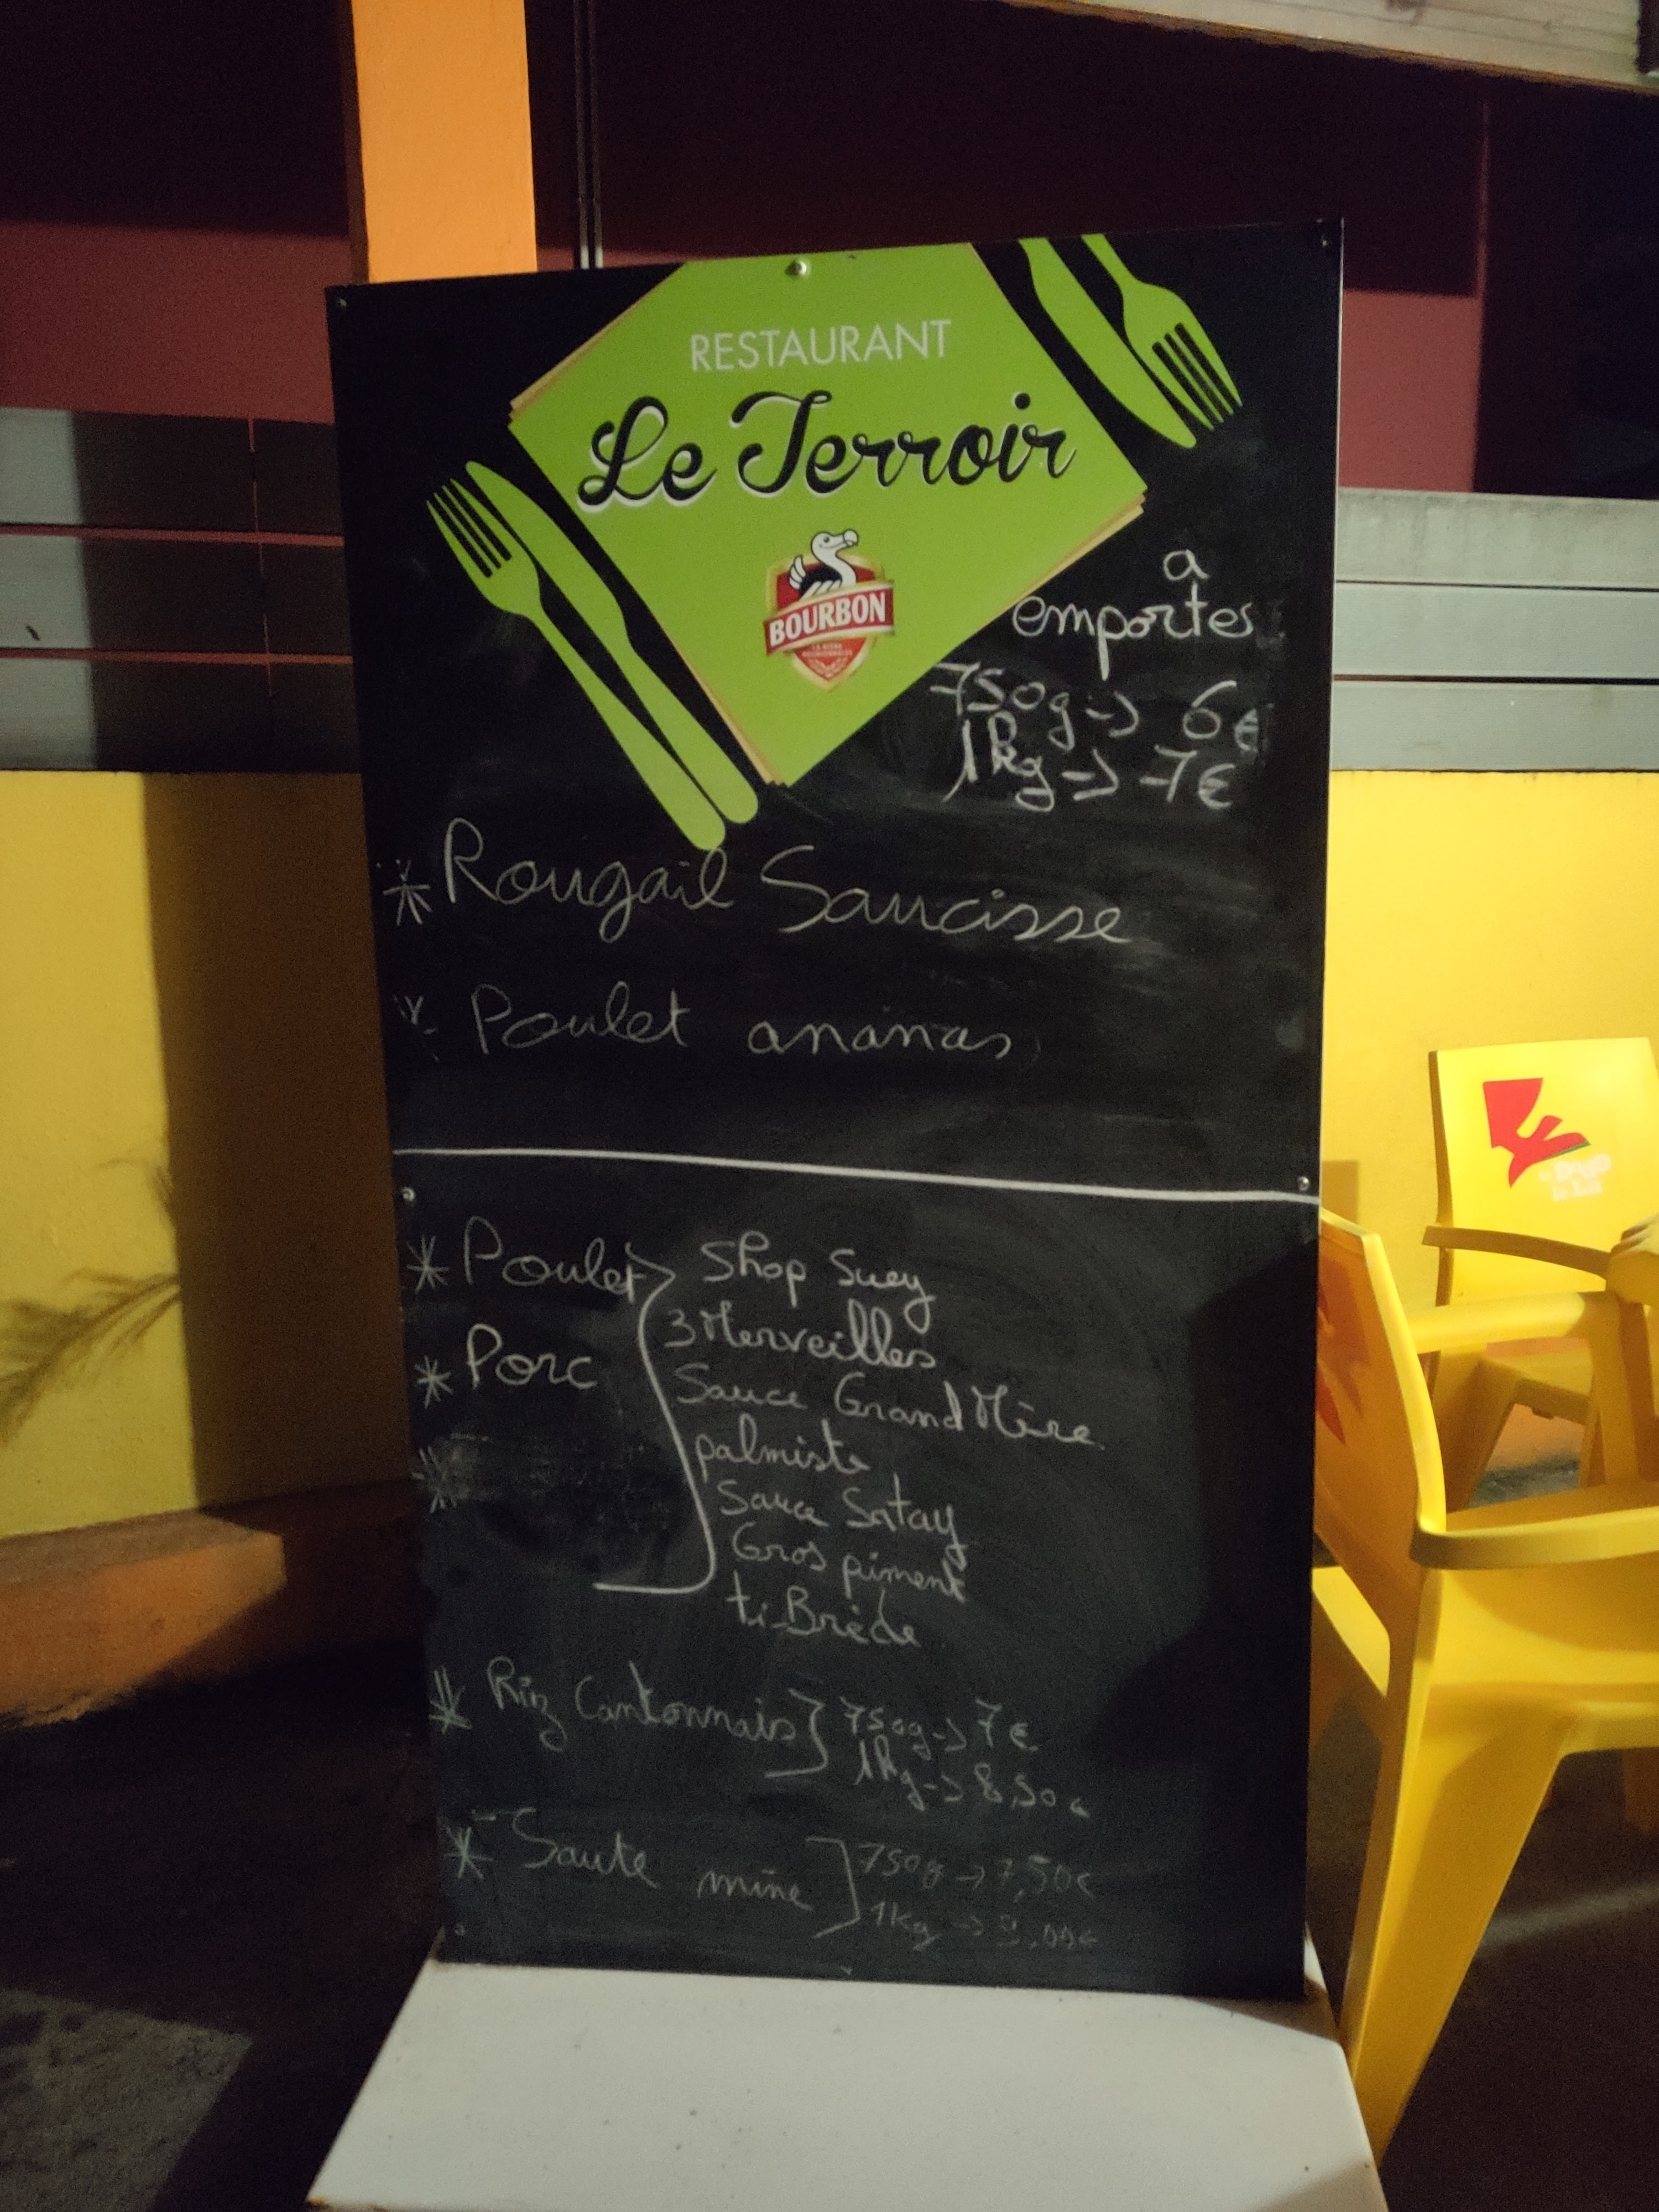 RESTAURANT
Le Terroir
BOURBON
a
emportes
750g -> 6€
1kg -> 7€
* Rougail Saucisse
* Poulet ananas
* Poulet
* Porc
*
Shop Suey
3 Merveilles
Sauce Grand Mère
palmiste
Sauce Satay
Gros piment
ti Brède
* Riz Cantonnais } 750g -> 7€
1kg -> 8,50€
* Saute mine ] 750g -> 7,50€
1kg -> 9,00€